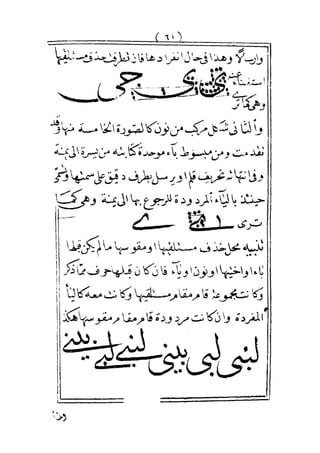 ( ٦١ )
وارسالا وهذا فى حال انفراد ها فان تطرف حذف مستلقيها
استغناء عنه
وهى كما ترى
والثانى شكل مركب من نون كالصورة الخامسة منها وقد
تقدمت ومن مبسوط باء موحدة كتابته من يسرة الى يمنة
وفى انتهائه تحريف قلم او رسل بطرف دقيق على سمتها وتسمى
حينئذ بالياء المردودة للرجوع بها الى يمنة وهى كما
ترى
تنبيه محل حذف مستلقيها او مقوسها ما لم يكن قبلها
باء او اخيتها او نون او ياء فان كان قبلها حرف مما ذكر
وكانت مجموعة قام مقام مستلقيها وكانت معه كالياء
المفردة وان كانت مردودة قام مقام مقوسها هكذا
لبنى لبى بينى